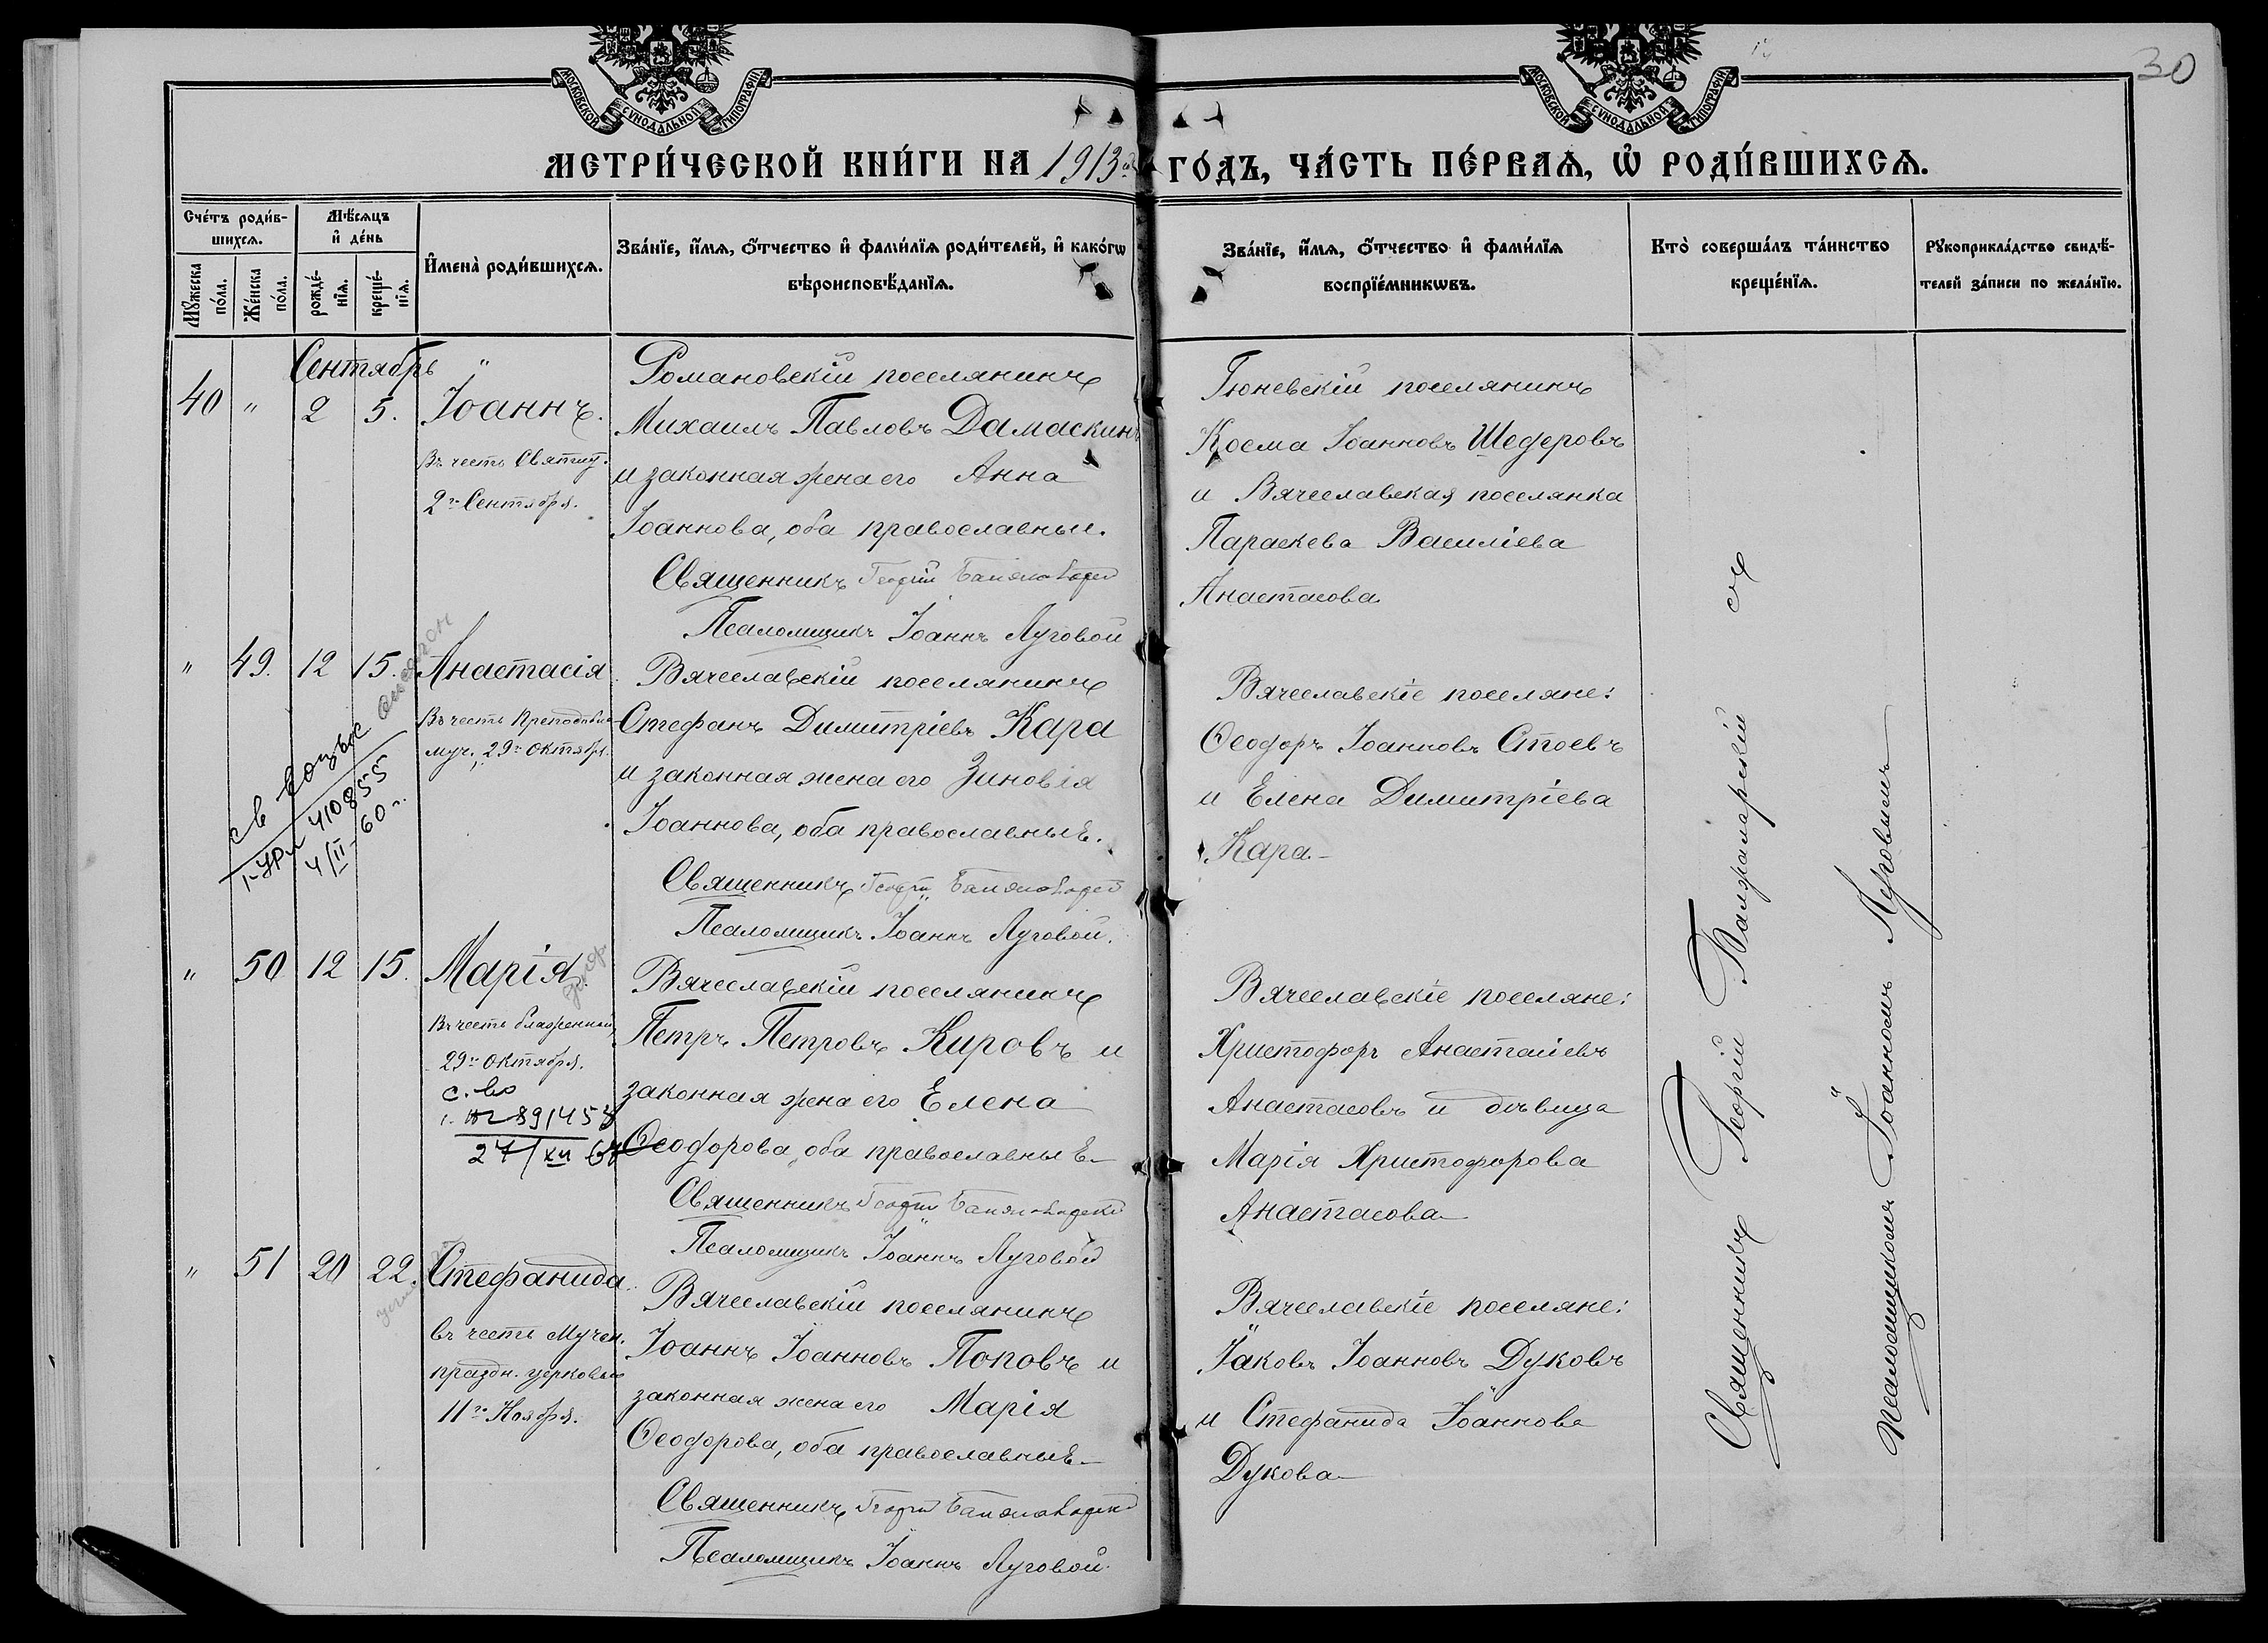 МОСКОВСКОЙ СѴНОДАЛЬНОЙ ТИПОГРАФІИ
МОСКОВСКОЙ СѴНОДАЛЬНОЙ ТИПОГРАФІИ
30
МЕТРИ́ЧЕСКОЙ КНИ́ГИ НА 1913й
ГО́ДЪ, ЧА́СТЬ ПЕ́РВАѦ, Ѡ҆ РОДИ́ВШИХСѦ.
Сче́тъ роди́в-
шихсѧ.
Мꙋ́жеска
по́ла.
Же́нска
по́ла.
Мѣ́сѧцъ
и҆ де́нь
рожде́-
нїѧ.
креще́-
нїѧ.
И҆мена̀ роди́вшихсѧ.
Зва́нїе, и҆́мѧ, ѻ҆́тчество и҆ фами́лїѧ роди́телей, и҆ како́гѡ
вѣроисповѣ́данїѧ.
Зва́нїе, и҆́мѧ, ѻ҆́тчество и҆ фами́лїѧ
воспрїе́мникѡвъ.
Кто̀ соверша́лъ та́инство
креще́нїѧ.
Рꙋкоприкла́дство свидѣ́-
телей за́писи по жела́нїю.
Сентябрь "
40 " 2 5. Іоаннъ.
Въ честь Святит.
2го Сентября.
Романовскій поселянинъ
Михаилъ Павловъ Дамаскинъ
и законная жена его Анна
Іоаннова, оба православные.
Священникъ Георгій
Псаломщикъ Іоаннъ Луговой
Гюневскій поселянинъ
Косма Іоанновъ Шедеровъ
и Вячеславская поселянка
Параскева Василіева
Анастасова
" 49. 12 15. Анастасія
Въ честь Преподобно
муч., 29го Октября.
св
410855
4/II-60 г.
Вячеславскій поселянинъ
Стефанъ Димитріевъ Кара
и законная жена его Зиновія
Іоаннова, оба православные.
Священникъ Георгій
Псаломщикъ Іоаннъ Луговой.
Вячеславскіе поселяне:
Ѳеодоръ Іоанновъ Стоевъ
и Елена Димитріева
Кара
" 50 12 15. Марія.
Въ честь блаженной,
29го Октября.
с. во
891458
27/XII
Вячеславскій поселянинъ
Петръ Петровъ Кировъ и
законная жена его Елена
Ѳеодорова, оба православные
Священникъ Георгій
Псаломщикъ Іоаннъ Луговой
Вячеславскіе поселяне:
Христофоръ Анастасіевъ
Анастасовъ и дѣвица
Марія Христофорова
Анастасова
" 51 20 22. Стефанида.
въ честь Мучен.
праздн. церковью
11го Ноября.
Вячеславскій поселянинъ
Іоаннъ Іоанновъ Поповъ и
законная жена его Марія
Ѳеодорова, оба православные
Священникъ Георгій
Псаломщикъ Іоаннъ Луговой.
Вячеславскіе поселяне:
Іаковъ Іоанновъ Дуковъ
и Стефанида Іоаннова
Дукова
Священникъ Георгій съ
псаломщикомъ Іоанномъ Луговымъ